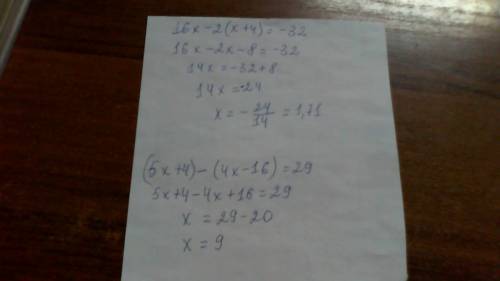 16x-2(x+4)=-32
16x-2x-8=-32
14x=-32+8
14x=-24
x=-24/14=1,71
(5x+4)-(4x-16)=29
5x+4-4x+16=29
x=29-20
x=9